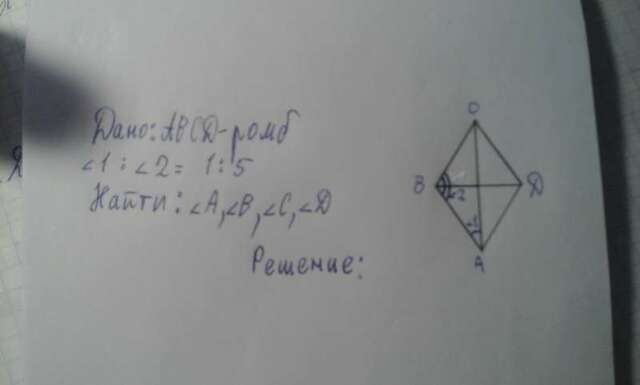 Дано: ABCD-ромб
∠1 : ∠2 = 1 : 5
Найти: ∠A, ∠B, ∠C, ∠D
Решение:
O
B
∠2
D
A